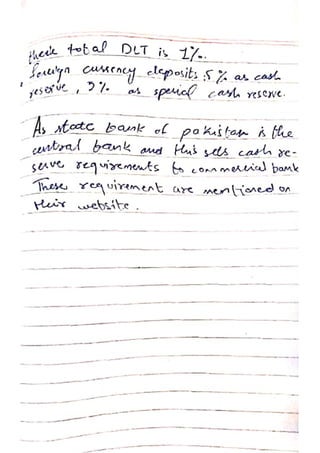 their total DLT is 1%.
foreign currency deposits 5% as cash
reserve, 9% as special cash reserve.
As state bank of pakistan is the
central bank and this sets cash re-
serve requirements to commercial bank
These requirement are mentioned on
their website.